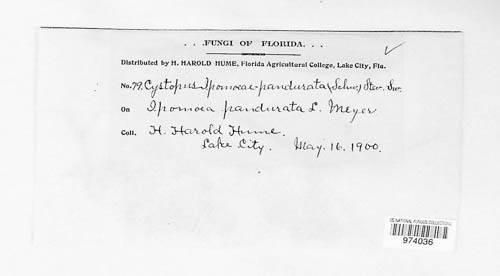 . . .FUNGI OF FLORIDA. . .
Distributed by H. HAROLD HUME, Florida Agricultural College, Lake City, Fla.
No. 79. Cystopus Ipomoeae-panduratae (Schw.) Stev. Sw.
On Ipomoea pandurata L. Meyer
Coll. H. Harold Hume.
Lake City. May. 16. 1900.
US NATIONAL FUNGUS COLLECTIONS
974036